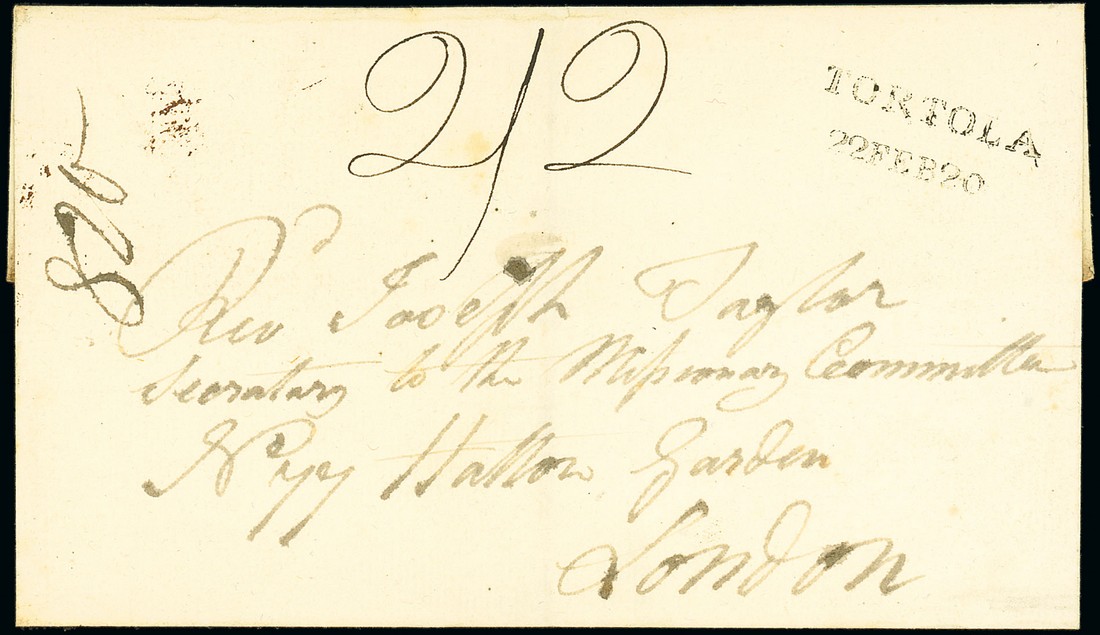 2/2
TORTOLA
22FEB20
Revd Joseph Taylor
Secretary to the Missionary Committee
No 77 Hatton Garden
London